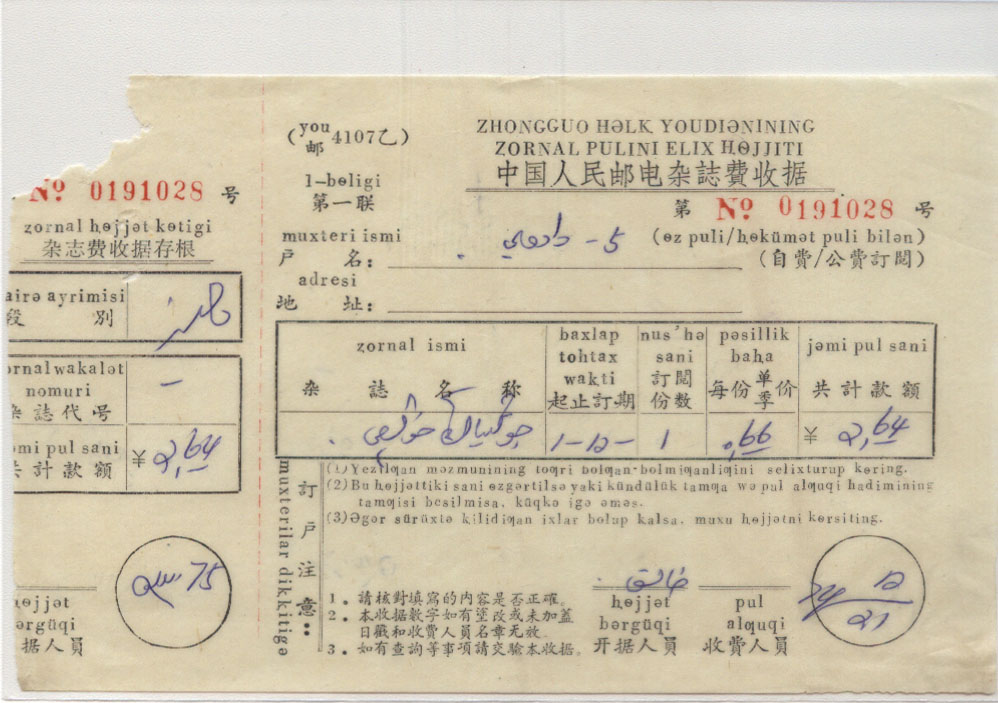 № 0191028 号
zornal ⱨɵjjət kɵtigi
杂志费收据存根
airə ayrimisi
段 别
ornal wakalət
nomuri
杂誌代号
omi pul sani
共计款额
¥ 2,64
75
ⱨɵjjət
bərgüqi
据人员
(you 邮 4107乙)
1-bɵligi
第一联
ZHONGGUO HƏLK YOUDIƏNINING
ZORNAL PULINI ELIX ⱧɵJJITI
中国人民邮电杂誌費收据
第 № 0191028 号
muxteri ismi
戶 名:
(ɵz puli/ⱨɵkümət puli bilən)
(自費/公費訂閱)
adresi
地 址:
zornal ismi
杂 誌 名 称
baxlap
tohtax
wakti
起止訂期
nus'hə
sani
訂閱
份数
pəsillik
baⱨa
每份单季价
jəmi pul sani
共計款額
1-12- 1 ,66 ¥ 2,64
muxterilar dikkitigə
訂戶注意:
(1) Yezilƣan məzmunining toƣri bolƣan-bolmiƣanliƣini selixturup kɵring.
(2) Bu ⱨɵjjəttiki sani ɵzgərtilsə yaki kündülük tamƣa wə pal alƣuqi hadimining
tamƣisi besilmisa, küqkə igə əməs.
(3) Əgər sürüxtə kilidiƣan ixlar bolup kalsa, muxu ⱨɵjjətni kɵrsiting.
1. 請核對填寫的内容是否正確。
2. 本收据數字如有塗改或未加蓋
日戳和收費人員名章无效。
3. 如有查詢等事項請交驗本收据。
ⱨɵjjət
bərgüqi
开据人員
pul
alƣuqi
收費人員
12
21